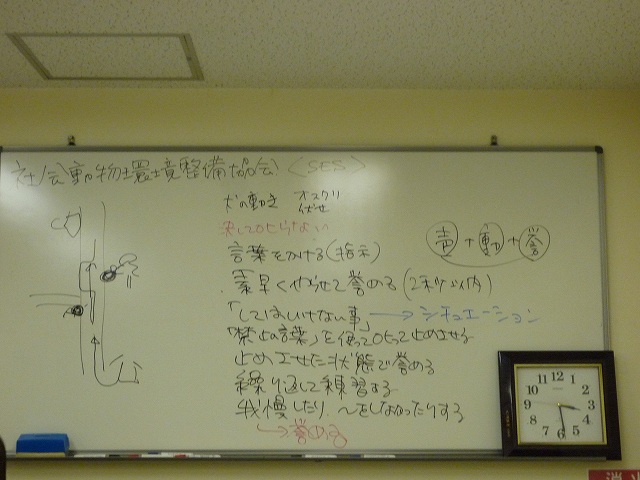 社会動物環境整備協会 〈SES〉
犬の動き オスワリ
伏せ
決して叱らない
言葉をかける(指示)
素早くやらせて誉める(2秒以内)
声+動+誉
「してはいけない事」→シチュエーション
「禁止の言葉」を使って 止めさせる
止めさせた状態で誉める
繰り返して練習する
我慢したり 〜をしなかったりする
→誉める
12
1
2
3
4
5
6
7
8
9
10
11
消火